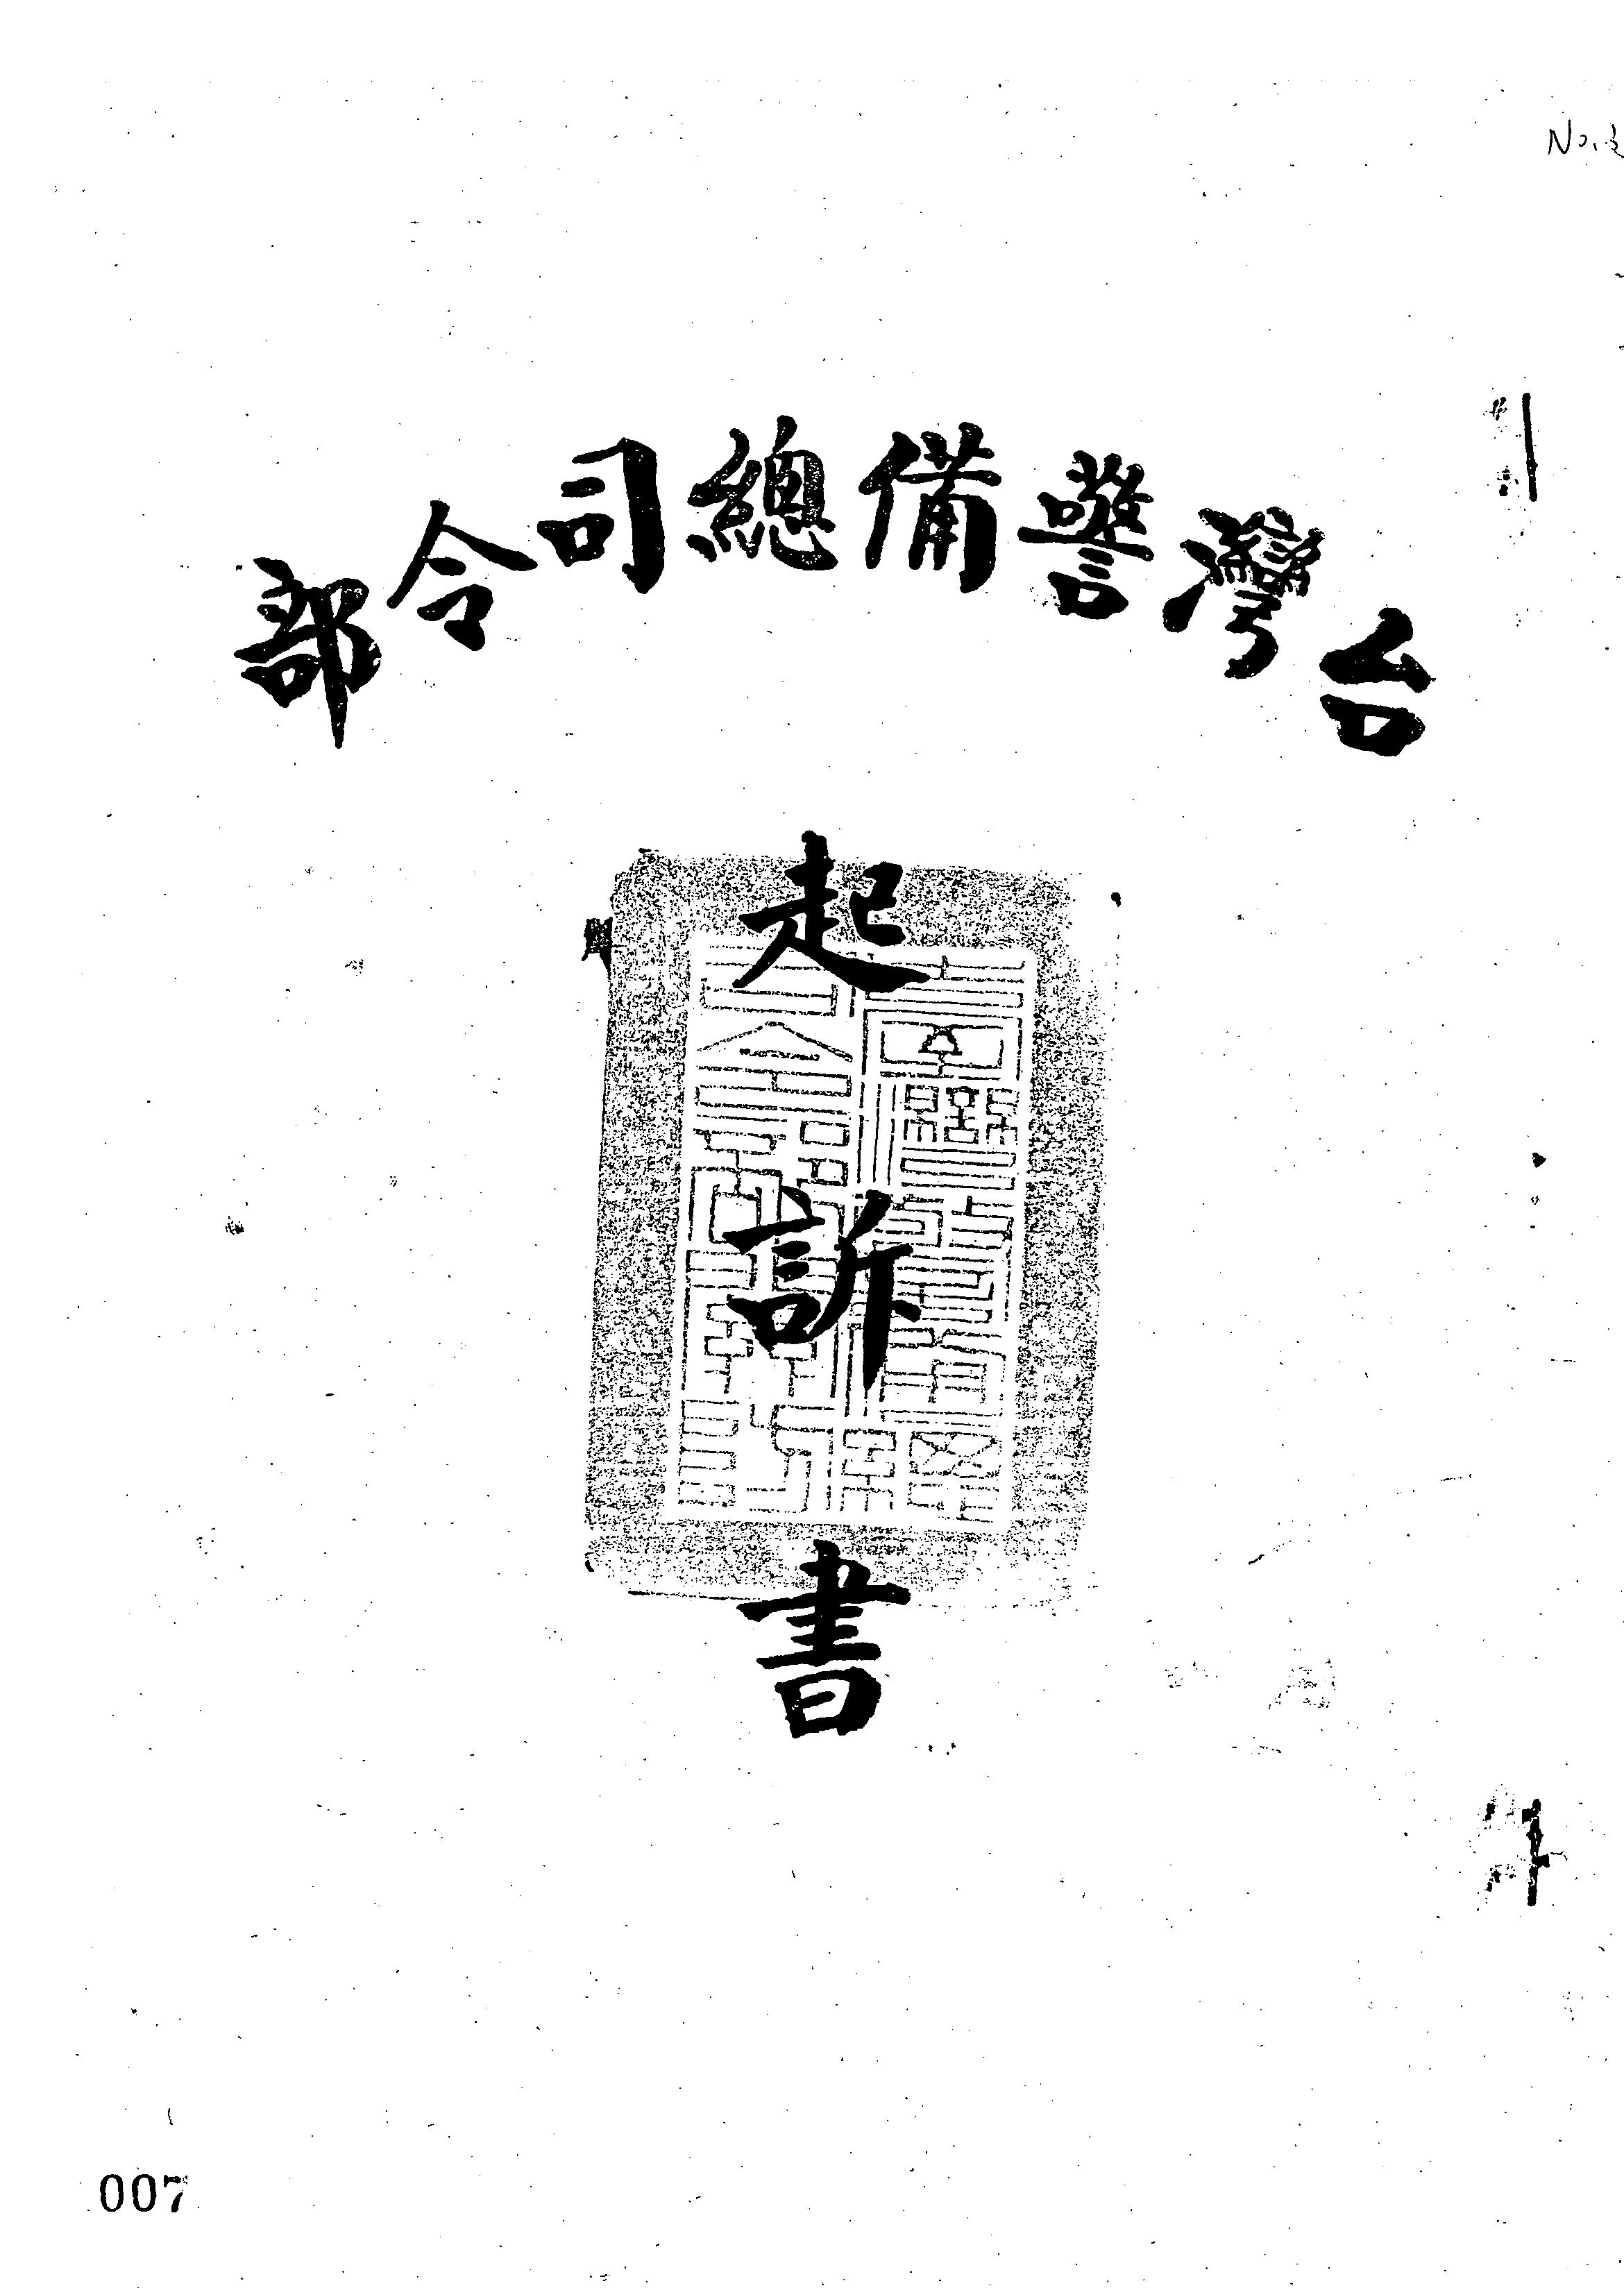 台灣警備總司令部
起訴書
007